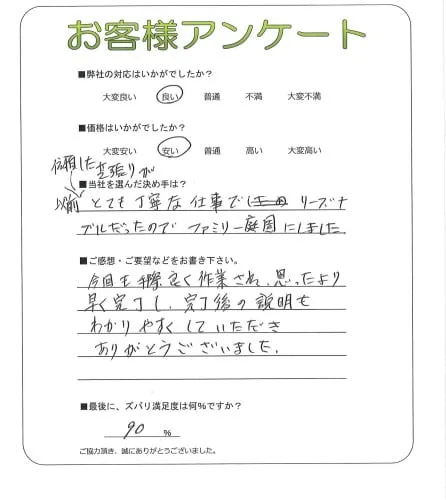 お客様アンケート
■弊社の対応はいかがでしたか?
大変良い 良い 普通 不満 大変不満
■価格はいかがでしたか?
大変安い 安い 普通 高い 大変高い
依頼した芝張りが
■当社を選んだ決め手は?
以前 とても丁寧な仕事で リーズナ
ブルだったので ファミリー庭園にしました
■ご感想・ご要望などをお書き下さい。
今回も手際良く作業され、思ったより
早く完了し、完了後の説明も
わかりやすくしていただき
ありがとうございました。
■最後に、ズバリ満足度は何%ですか?
90 %
ご協力頂き、誠にありがとうございました。